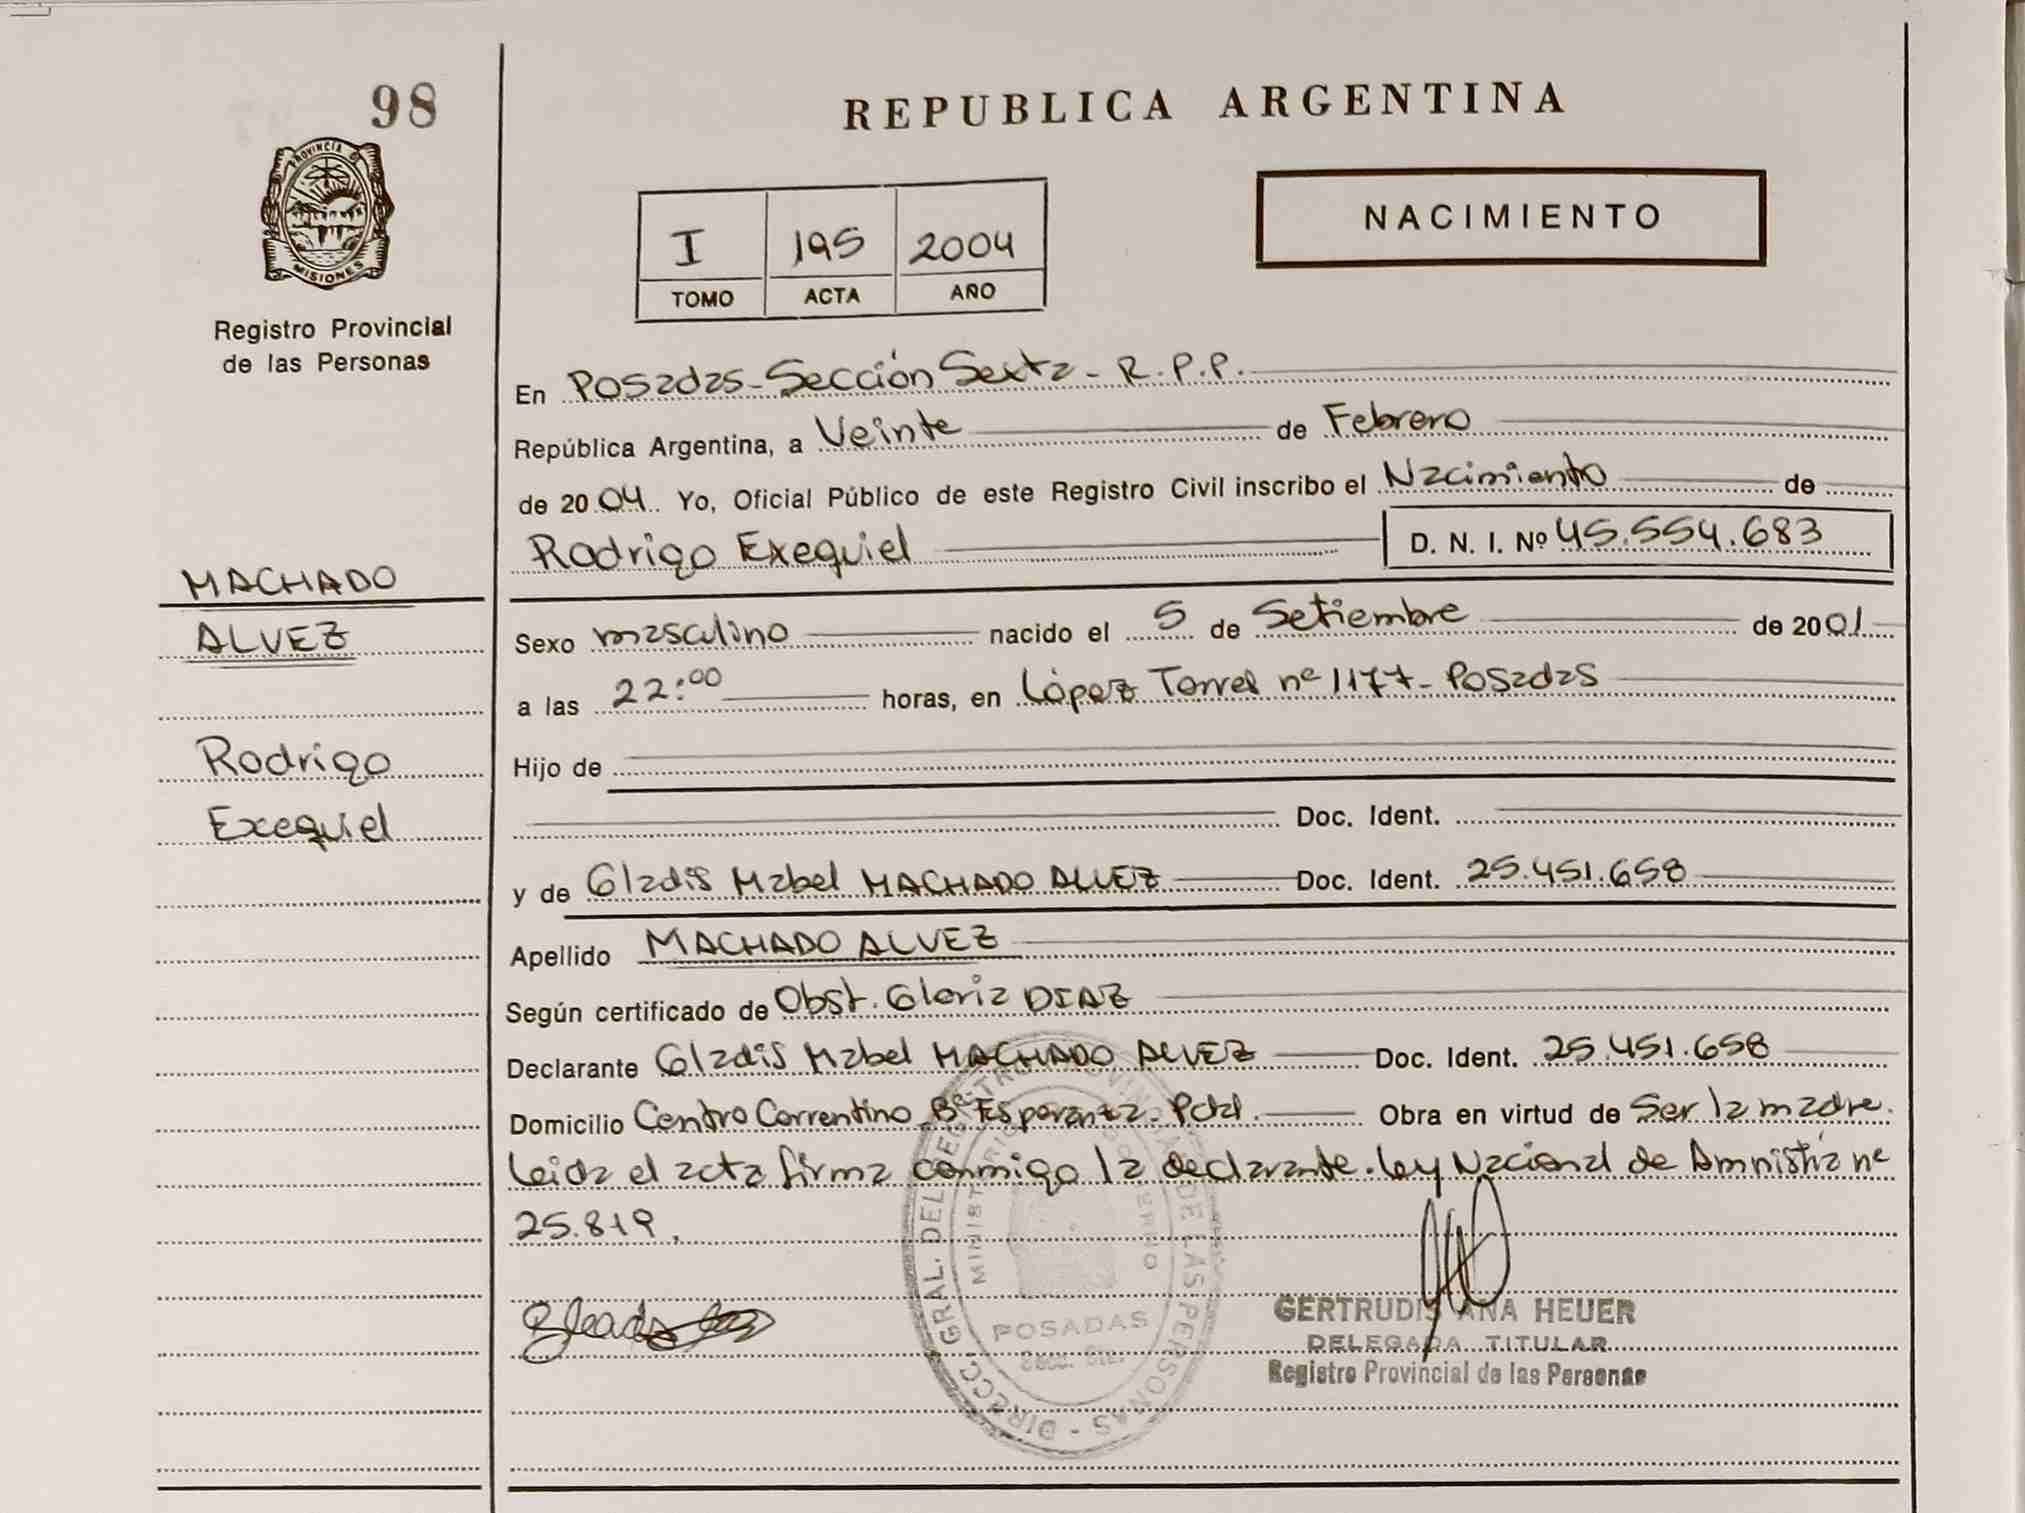 98
REPUBLICA ARGENTINA
PROVINCIA DE
MISIONES
Registro Provincial
de las Personas
I 195 2004
TOMO ACTA AÑO
NACIMIENTO
En Posadas - Sección Sexta - R.P.P.
República Argentina, a Veinte de Febrero
de 2004. Yo, Oficial Público de este Registro Civil inscribo el Nacimiento de
Rodrigo Exequiel D. N. I. Nº 45.554.683
MACHADO
ALVEZ
Rodrigo
Exequiel
Sexo masculino nacido el 5 de Setiembre de 2001
a las 22:00 horas, en López Torres nº 1177 - Posadas
Hijo de
Doc. Ident.
y de Gladis Mabel MACHADO ALVEZ Doc. Ident. 25.451.658
Apellido MACHADO ALVEZ
Según certificado de Obst. Gloria DIAZ
Declarante Gladis Mabel MACHADO ALVEZ Doc. Ident. 25.451.658
Domicilio Centro Correntino Bº Esperanza - Pdal. Obra en virtud de Ser la madre.
Leida el acta firma conmigo la declarante. Ley Nacional de Amnistía nº
25.819.
DIRECC. GRAL. DEL REGISTRO DE LAS PERSONAS
POSADAS
GERTRUDIS ANA HEUER
DELEGADA TITULAR
Registro Provincial de las Personas